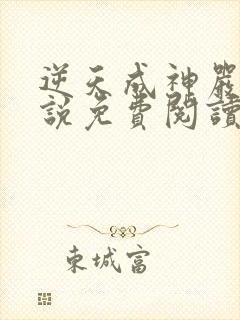 逆天成神嚴
說免費閱讀
東城富